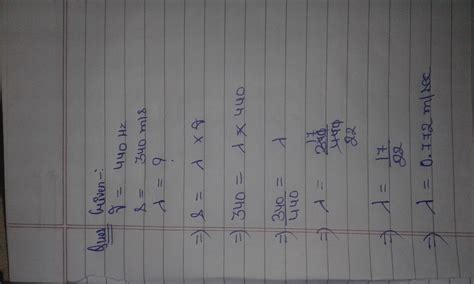 Ques Given-:
ν = 440 Hz
s = 340 m/s
λ = ?
⇒ s = λ × ν
⇒ 340 = λ × 440
⇒ 340/440 = λ
⇒ λ = 17 340/440 22
⇒ λ = 17/22
⇒ λ = 0.772 m/sec